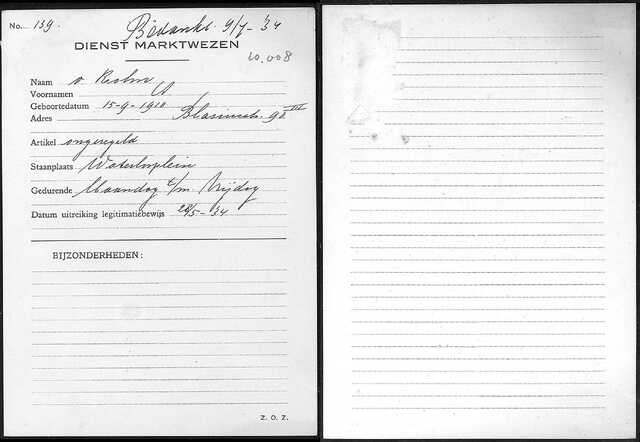 No. 139. Bedankt 9/7-'34
DIENST MARKTWEZEN
60.008
Naam v.
Voornamen A
Geboortedatum 15-9-1910
Adres Blasiusstr. 90 III
Artikel ongeregeld
Staanplaats Waterlooplein
Gedurende Maandag t/m Vrijdag
Datum uitreiking legitimatiebewijs 28/5-'34
BIJZONDERHEDEN:
Z. O. Z.